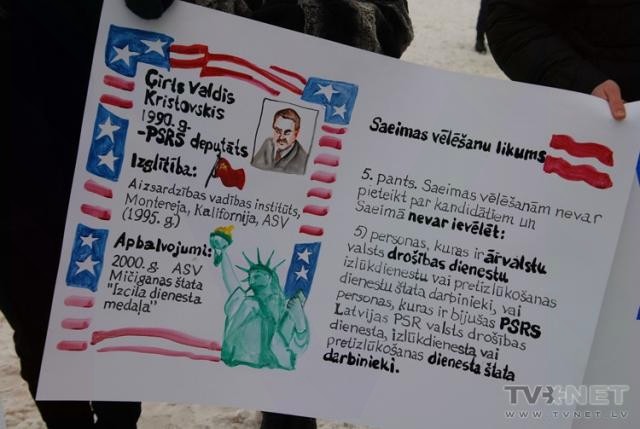 Ģirts Valdis
Kristovskis
1990. g.
-PSRS deputāts
Izglītība:
Aizsardzības vadības institūts,
Montereja, Kalifornija, ASV
(1995. g.)
Apbalvojumi:
2000. g. ASV
Mičiganas štata
"Izcila dienesta
medaļa"
Saeimas vēlēšanu likums
5. pants. Saeimas vēlēšanām nevar
pieteikt par kandidātiem un
Saeimā nevar ievēlēt:
5) personas, kuras ir ārvalstu
valsts drošības dienestu,
izlūkdienestu vai pretizlūkošanas
dienestu štata darbinieki, vai
personas, kuras ir bijušas PSRS
Latvijas PSR valsts drošības
dienesta, izlūkdienesta vai
pretizlūkošanas dienesta štata
darbinieki.
TVNET
WWW.TVNET.LV